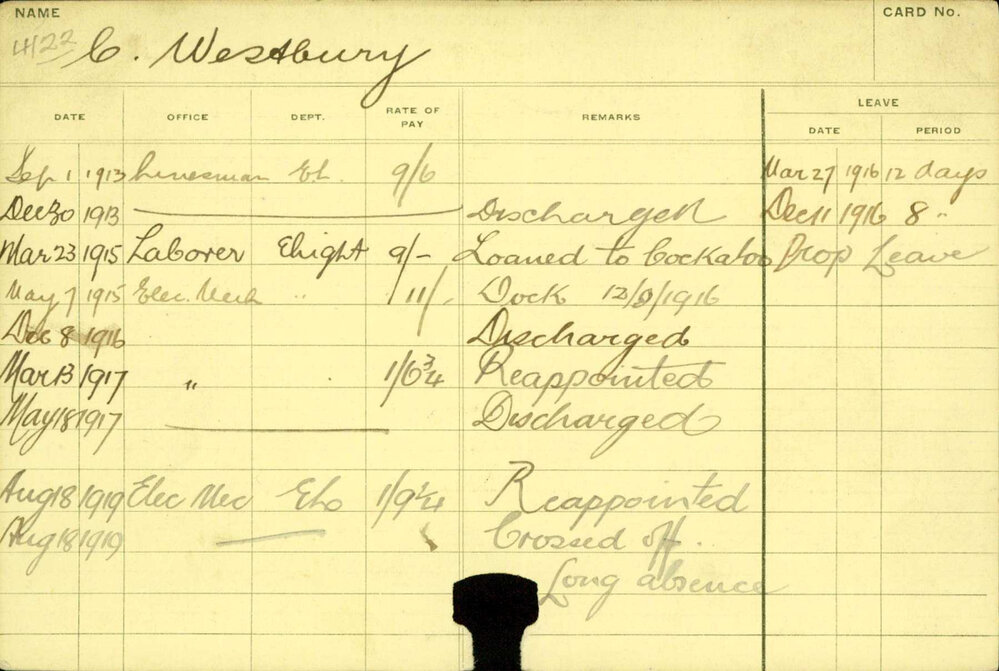 NAME
CARD No.
4122 C. Westbury
LEAVE
DATE OFFICE DEPT. RATE OF PAY REMARKS DATE PERIOD
Sep 1 1913 Linesman E.L. 9/6 Mar 27 1916 12 days
Dec 30 1913 Discharged Dec 11 1916 8 "
Mar 23 1915 Laborer Elight 9/- Loaned to Cockatoo Prop Leave
May 7 1915 Elec. Mech " 11/. Dock 12/9/1916
Dec 8 1916 Discharged
Mar 13 1917 " 1/6¾ Reappointed
May 18 1917 Discharged
Aug 18 1919 Elec Mec 1/9¼ Reappointed
Aug 18 1919 Crossed off.
Long absence